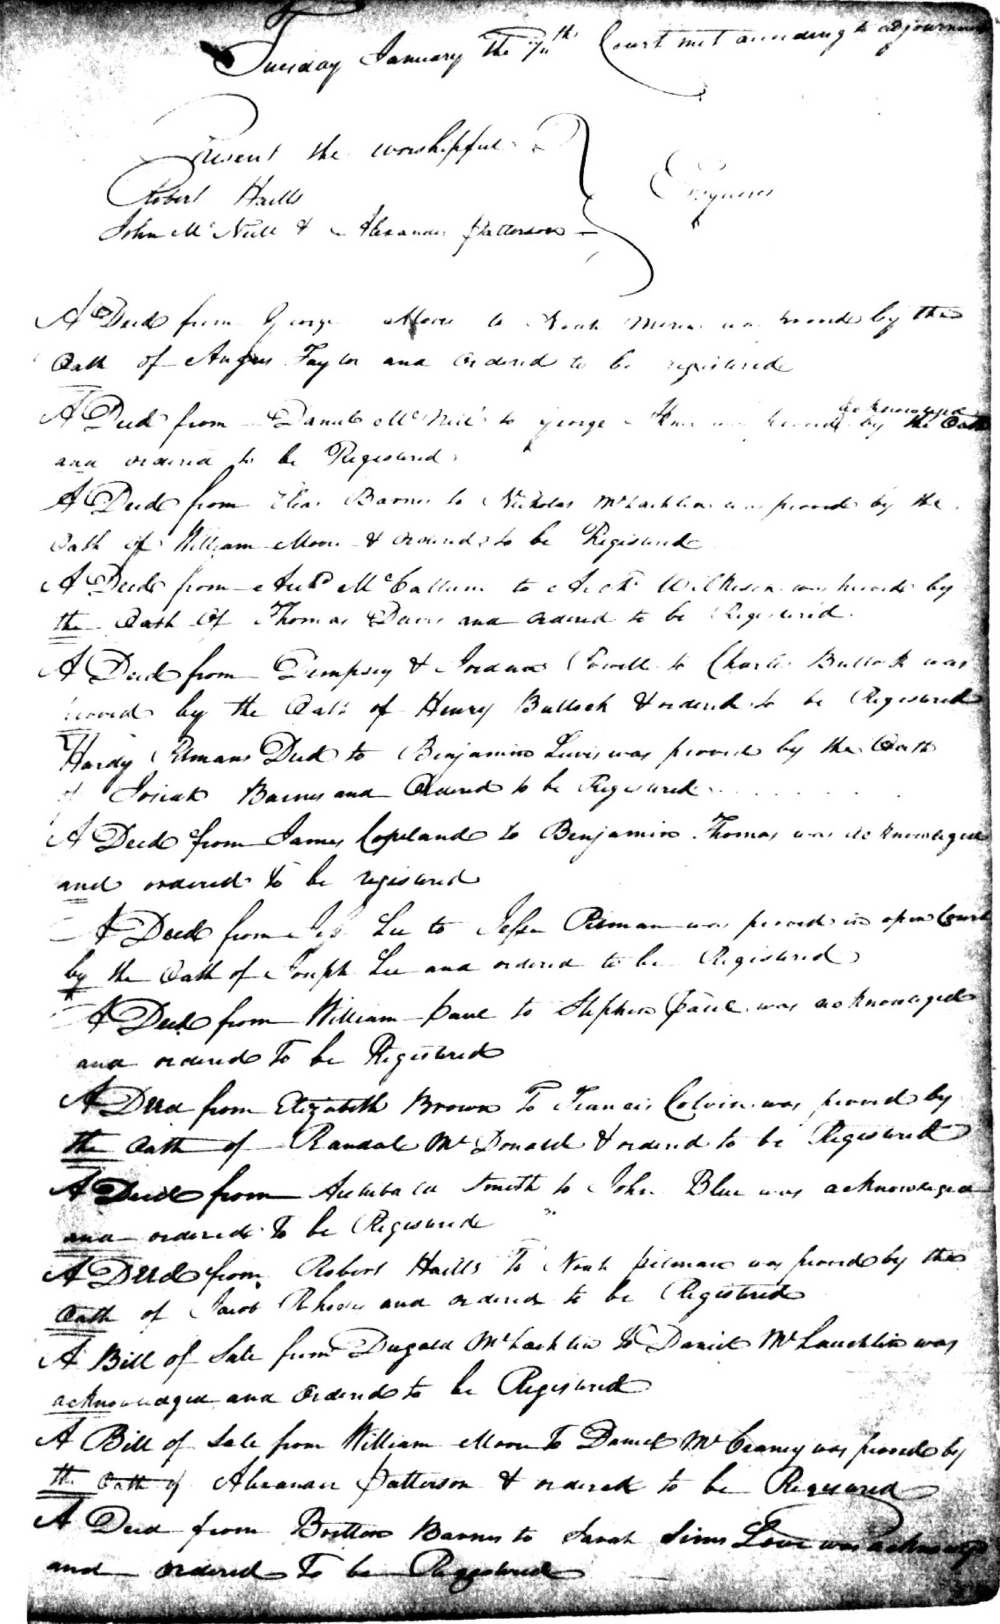 Tuesday January the 7th Court met according to adjournment
Present the worshipful
Robert Haills
Esquires
John McNeill & Alexander Patterson
A Deed from George Moore to Noah was proved by the
Oath of Angus Taylor and ordered to be registered
A Deed from Daniel McNeill to George was proved by the Oath
acknowledged
and ordered to be Registered
A Deed from Elias Barnes to Nicholas McLachlin was proved by the
Oath of William Moore & ordered to be Registered
A Deed from Archd McCallum to Wilkeson was proved by
the Oath of Thomas Davis and ordered to be Registered
A Deed from Dempsey & Jordan Powell to Charles Bullock was
proved by the Oath of Henry Bullock & ordered to be Registered
Hardy Pitmans Deed to Benjamin Lewis was proved by the Oath
of Josiah Barnes and Ordered to be Registered
A Deed from James Copeland to Benjamin Thomas was acknowledged
and ordered to be registered
A Deed from Lee to Jesse Pitman was proved in open Court
by the Oath of Joseph Lee and ordered to be Registered
A Deed from William Paul to Stephen Paul was acknowledged
and ordered To be Registered
A Deed from Elizabeth Brown To Francis Colvin was proved by
the Oath of Randal McDonald & ordered to be Registered
A Deed from Archibald Smith to John Blue was acknowledged
and ordered To be Registered
A Deed from Robert Haills To Noah Pitman was proved by the
Oath of Jacob Rhodes and ordered to be Registered
A Bill of Sale from Dugald McLachlin To Daniel McLauchlin was
acknowledged and Ordered to be Registered
A Bill of Sale from William Moore To Daniel McCraney was proved by
the Oath of Alexander Patterson & ordered to be Registered
A Deed from Britton Barnes to Sarah Sims Love was acknowledged
and ordered To be Registered